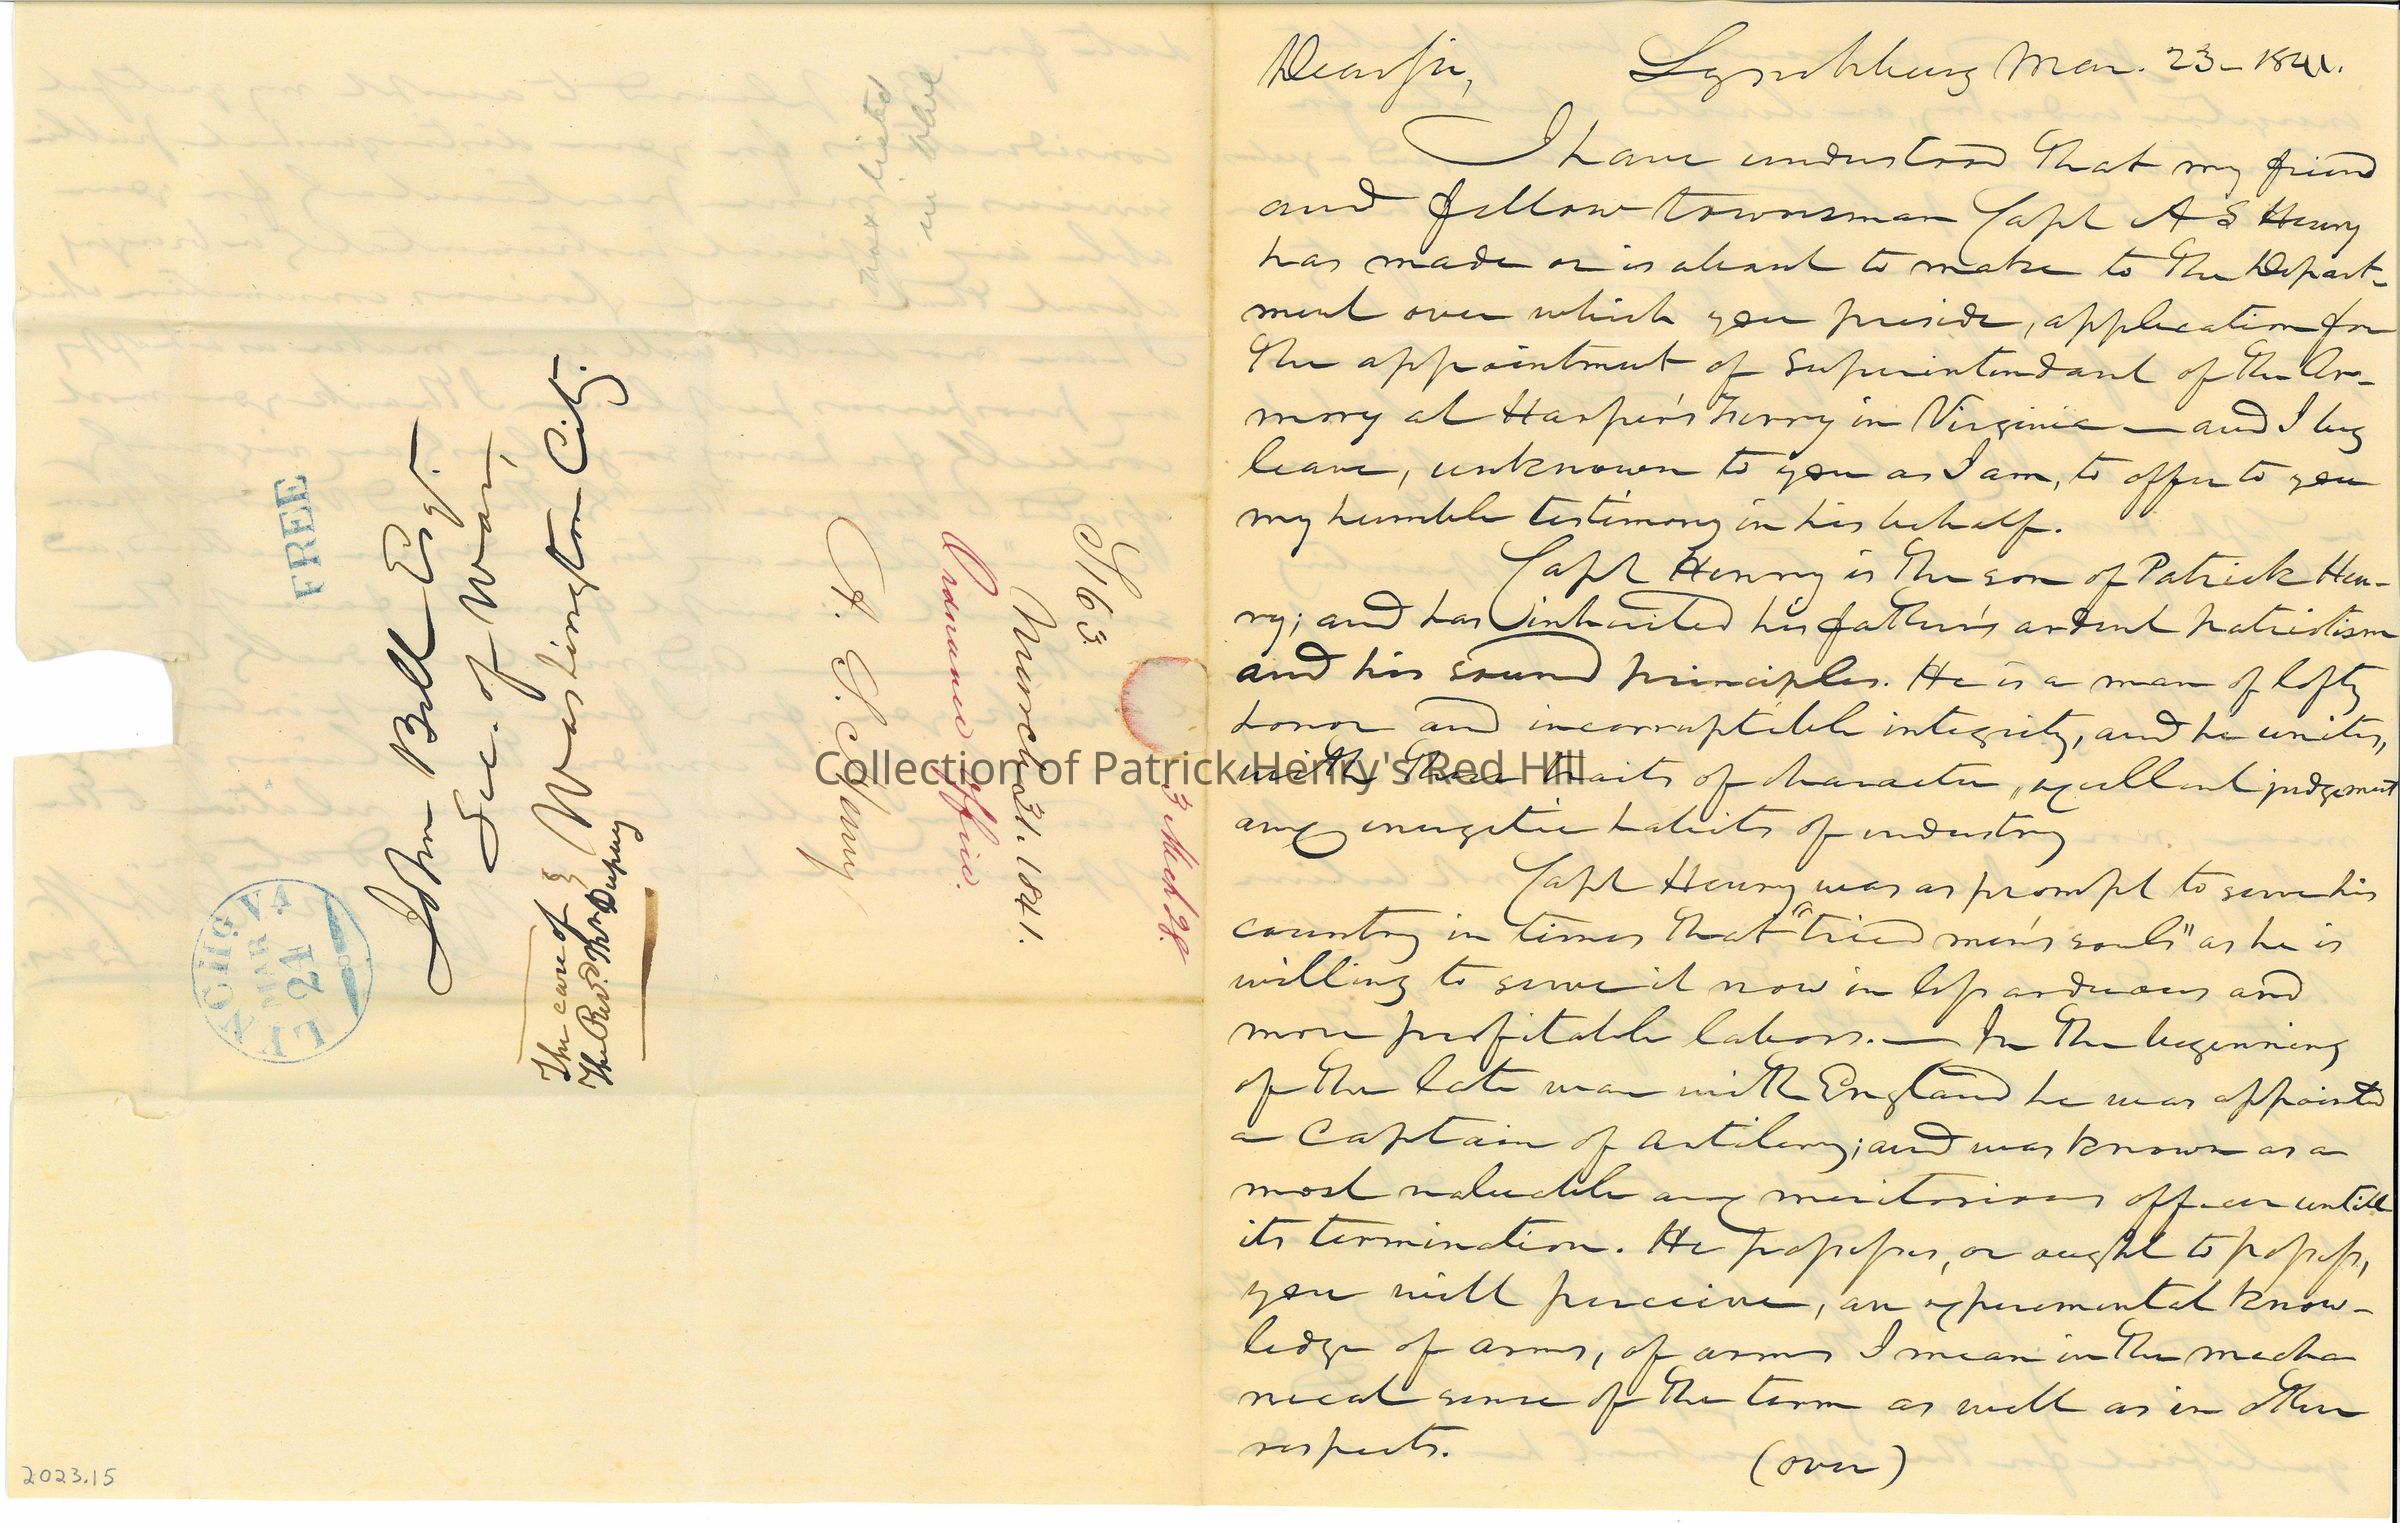 Dear Sir, Lynchburg Mar. 23- 1841.
I have understood that my friend
and fellow townsman Capt A S Henry
has made or is about to make to the Depart-
ment over which you preside, application for
the appointment of superintendant of the Ar-
mory at Harper's Ferry in Virginia — and I beg
leave, unknown to you as I am, to offer to you
my humble testimony in his behalf.
Capt Henry is the son of Patrick Hen-
ry; and has inherited his father's ardent patriotism
and his sound principles. He is a man of lofty
honor and incorruptible integrity, and he unites,
with these traits of character, excellent judgement
and energetic habits of industry
Capt Henry was as prompt to serve his
country in times that "tried men's souls" as he is
willing to serve it now in less arduous and
more profitable labors. — In the beginning
of the late war with England he was appointed
a Captain of artilery; and was known as a
most valuable and meritorious officer untill
its termination. He possesses, or ought to possess,
you will perceive, an experimental know-
ledge of arms, of arms I mean in the mecha
nical sense of the term as well as in other
respects.
(over)
John Bell Esqr.
Sec. of War,
Washington City.
The care of
The Rev. Dupuy
FREE
LYNCHBG VA
MAR
24
not listed
in
S163
March 31. 1841.
Ordnance Office.
A. S. Henry
3 Mch 28.
Collection of Patrick Henry's Red Hill
2023.15